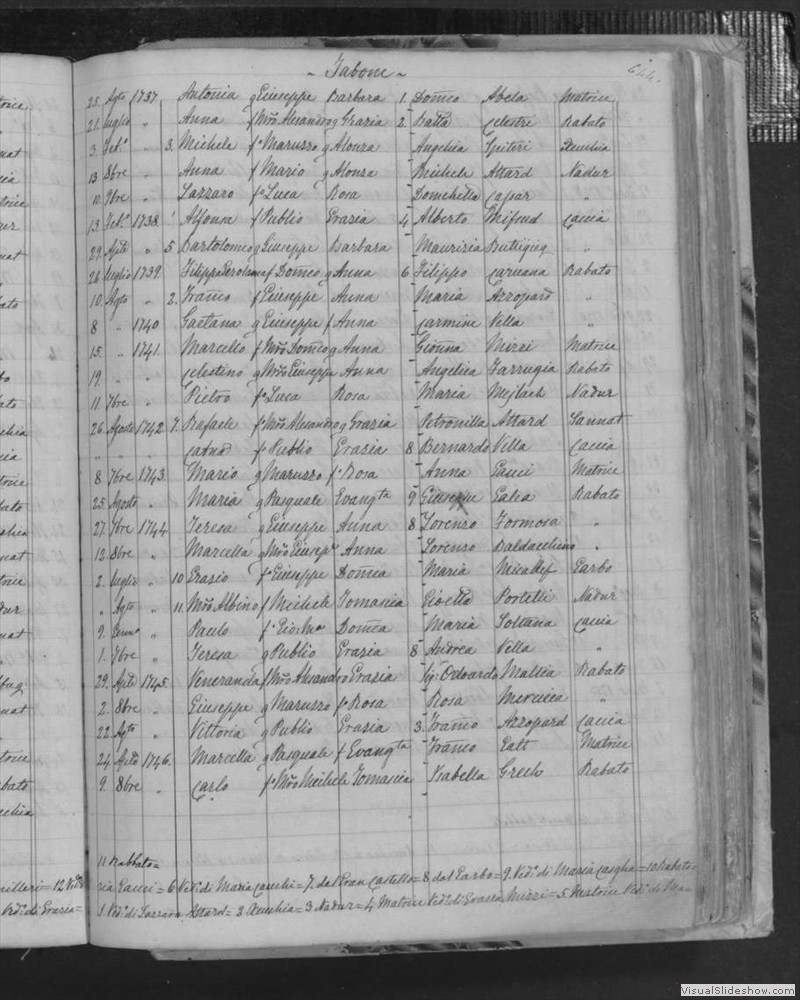 ~ Tabone ~ 644.
25. Agto 1737 Antonia g Giuseppe Barbara 1. Domco Abela Matrice
21. luglio " Anna f Mro Alesandro g Grazia 2. Batta Celestri Rabato
3. Feb.o " 3. Michele f.o Maruzzo g Alonza Angelica Spiteri Xeuchia
13 8bre " Anna f Mario g Alonza Michele Attard Nadur
10. 9bre " Lazzaro f.o Luca Rosa Domchella Caxar "
13 Feb.o 1738. Alfonsa f Publio Grazia 4 Alberto Mifsud Caccia
29. Aple " 5 Bartolomeo g Giuseppe Barbara Maurizia Buttigieg "
28 luglio 1739. Filippa f Domco g Anna 6 Filippo Caruana Rabato
10. Agto " 2. Franco f Giuseppe Anna Maria Azzopard "
8 " 1740 Gaetana g Giuseppe f Anna Carmine Vella "
15. " 1741. Marcello f Mro Domco g Anna Gionna Mizzi Matrice
19. " " Celestino g Mro Giuseppe Anna Angelica Farrugia Rabato
11 7bre " Pietro f.o Luca Rosa Maria Mejlach Nadur
26. Agosto 1742 7. Rafaele f.o Mro Alesandro g Grazia Petronilla Attard Sannat
" " " f.o Publio Grazia 8 Bernardo Vella Caccia
8 7bre 1743. Mario g Maruzzo f.o Rosa Anna Gauci Matrice
25. Agosto " Maria g Pasquale Evangta 9 Giuseppe Galea Rabato
27. 7bre 1744. Teresa g Giuseppe Anna 8 Lorenzo Formosa "
12. 8bre " Marcella g Mro Giusepe Anna Lorenzo Baldacchino "
2. luglio " 10 Grazio f.o Giuseppe Domca Maria Micallef Garbo
" Agto " 11. Mro Albino f Michele Tomasica Gioella Portelli Nadur
9. " Paulo f.o Gio: Ma Domca Maria Soltana Caccia
1. 7bre " Teresa g Publio Grazia 8 Andrea Vella "
29. Aple 1745. Veneranda f Mro Alesandro Grazia Sig: Odoardo Mallia Rabato
2. 8bre " Giuseppe g Maruzzo f.o Rosa Rosa Mercieca "
22. Agto " Vittoria g Publio Grazia 3. Franco Azzopard Caccia
24 Agto 1746. Marcella g Pasquale f Evangta Franco Gatt Matrice
9. 8bre " Carlo f.o Mro Michele Tomasica Isabella Grech Rabato
11 Rabbato =
ria Gauci = 6 Ved.o di Maria = 7 dal Gran Castello = 8 dal Garbo = 9. Ved.o di Maria = 10 Rabato =
1. Ved.o di Lazzaro Attard = 2 Xeuchia = 3 Nadur = 4 Matrice Ved.o di Grazia Mizzi = 5 Matrice Ved.o di Ma
VisualSlideshow.com